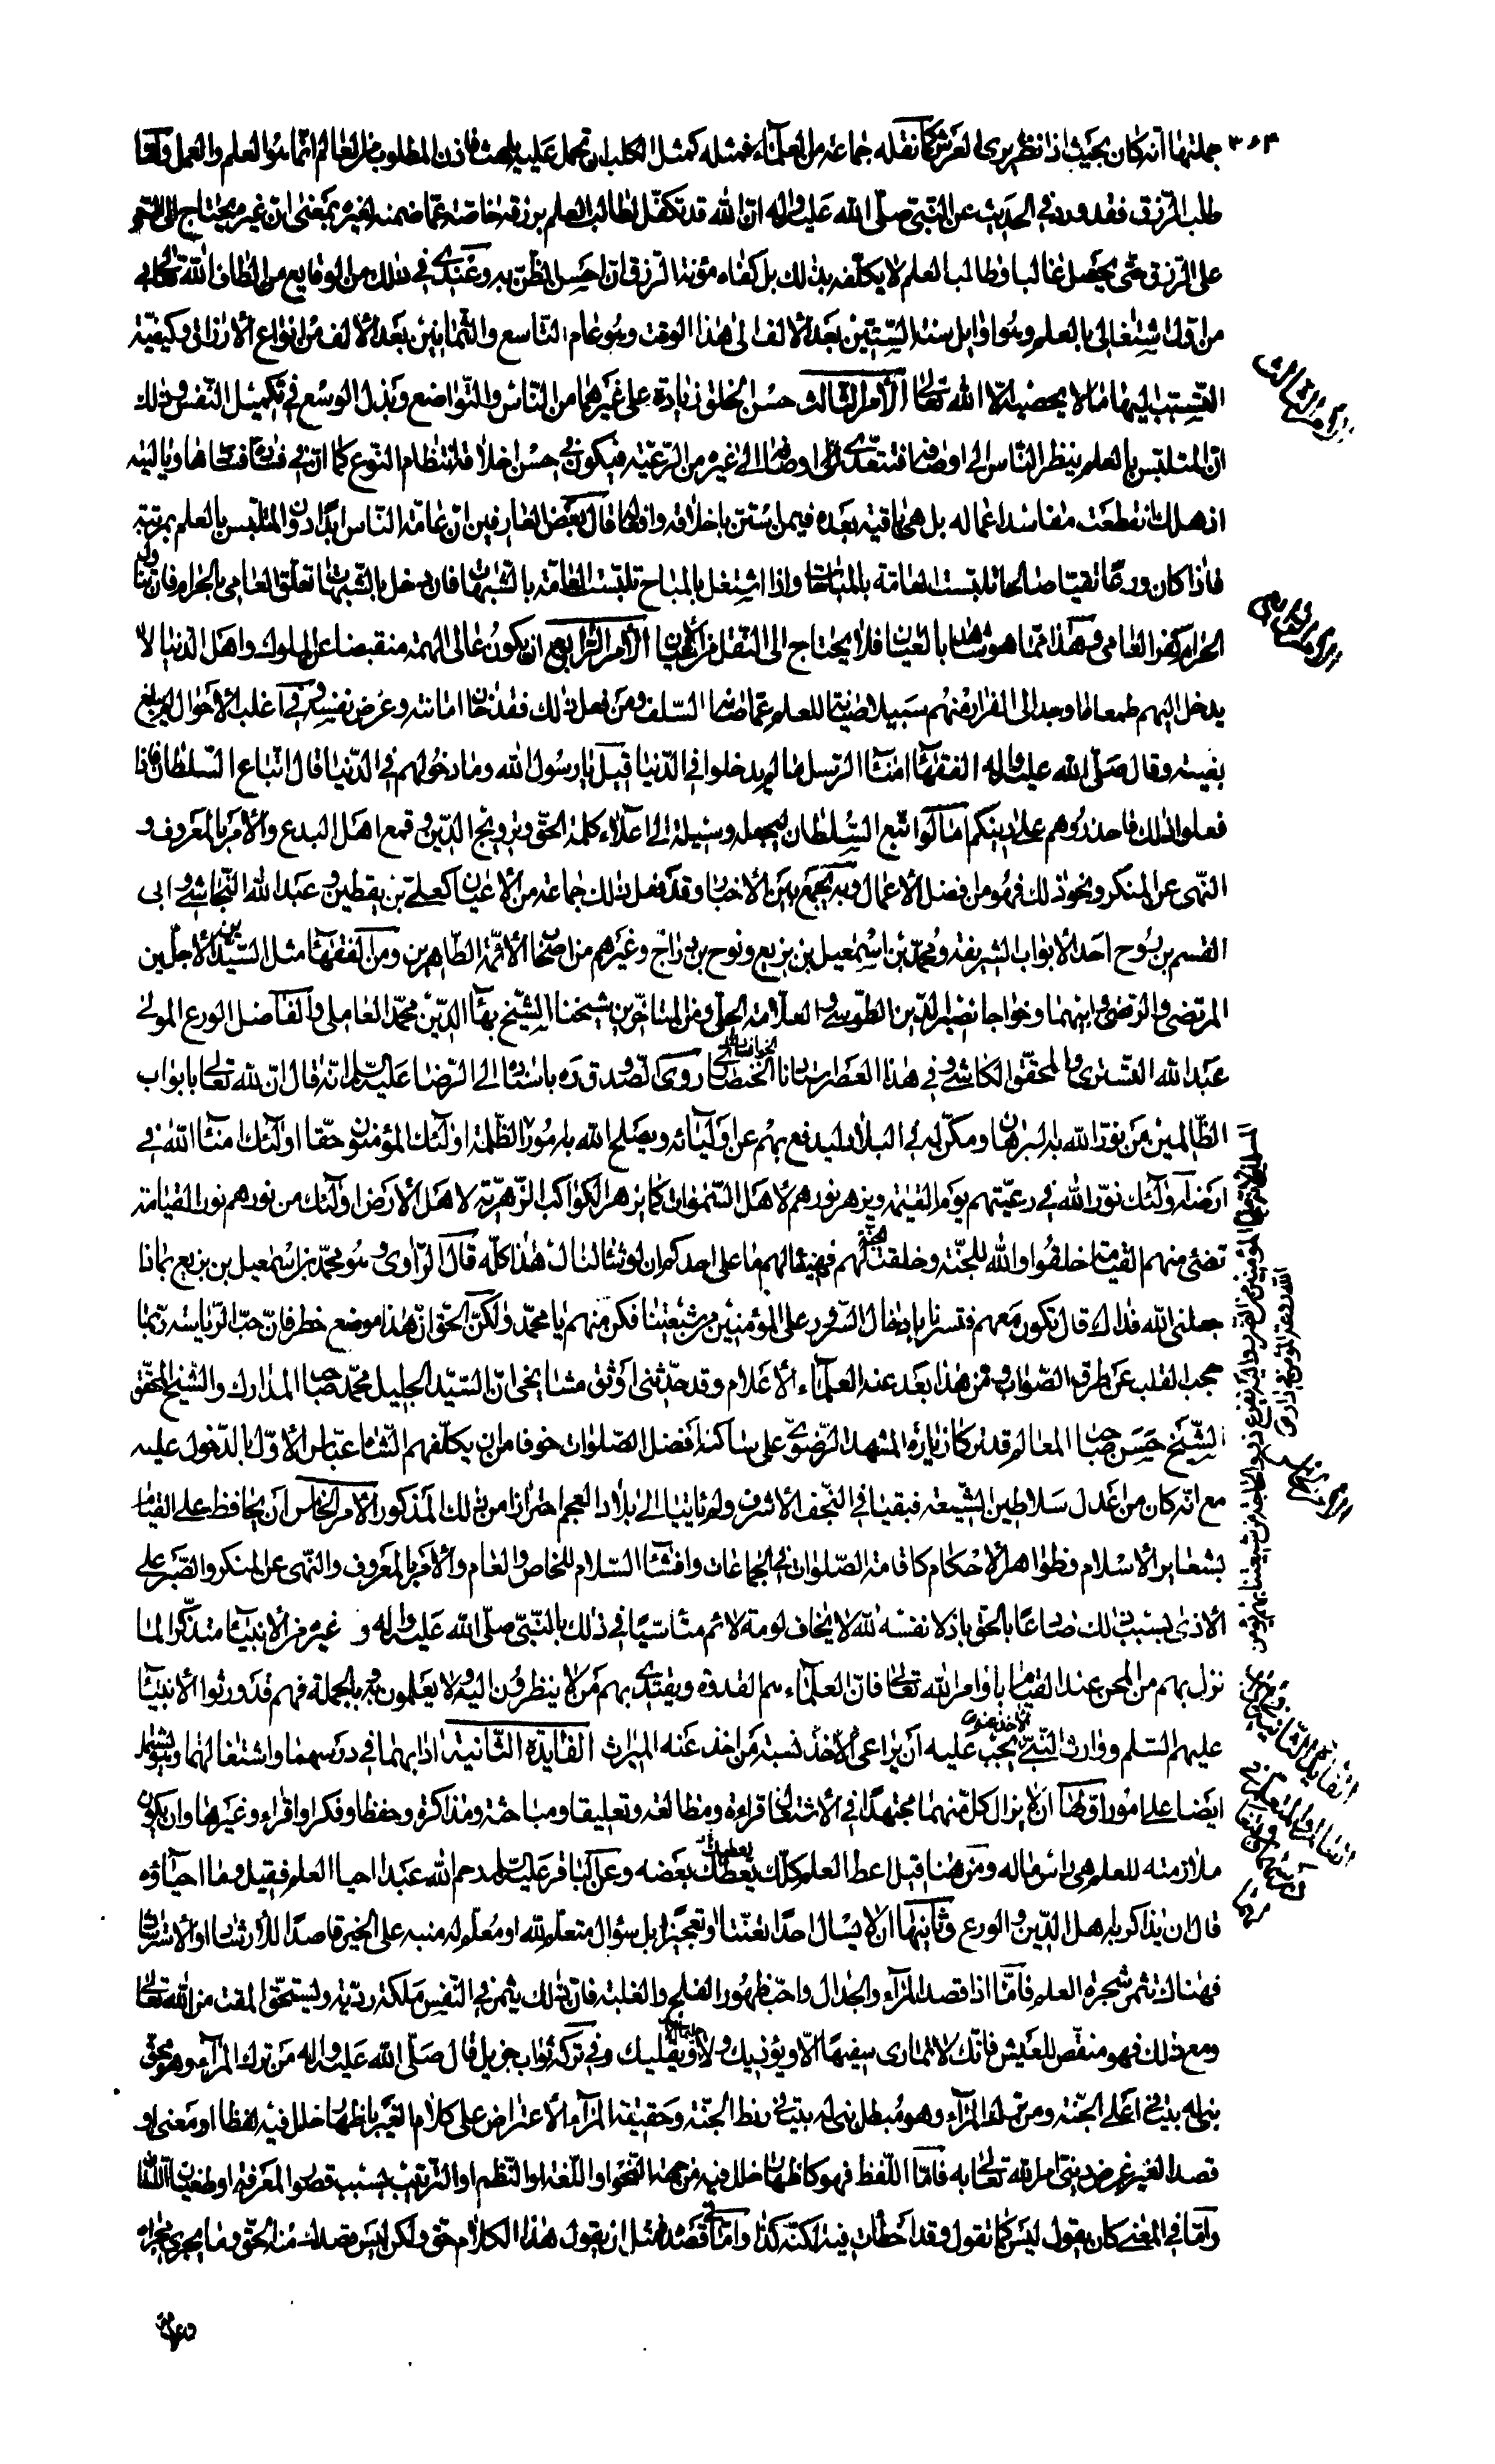 ٣٠٤
جملتها انّه كان بحيث اذا نظر يرى العرش كما نقله جماعة من العلمآء فمثله كمثل الكلب ان تحمل عليه يلهث فاذن المطلوب من العالم انّما هو العلم والعمل وامّا
طلب الرّزق فقد ورد في الحديث عن النّبيّ صلّى الله عليه واله انّ الله قد تكفّل لطالب العلم برزقه خاصّة عمّا ضمنه لغيره بمعنى انّ غيره يحتاج الى السّعي
على الرّزق حتّى يحصل غالبا وطالب العلم لا يكلّفه بذلك بل كفاه مؤنة الرّزق ان احسن الظّنّ به وعندي في ذلك من الوقايع من الطاف الله تعالى بي
من اوّل اشتغالي بالعلم وهو اوايل سنة السّتّين بعد الالف الى هذا الوقت وهو عام التّاسع والثّمانين بعد الالف من انواع الارزاق وكيفيّة
التّسبّب اليها ما لا يحصيه الّا الله تعالى الامر الثالث حسن الخلق زيادة على غيرهما من النّاس والتّواضع وبذل الوسع في تكميل النّفس وذلك
انّ المتلبّس بالعلم ينظر النّاس الى اوصافه فتتعدّى اوصافه الى غيره من الرّعيّة فيكون في حسن اخلاقه انتظام النّوع كما انّ في فسادها فسادها ويا ليته
اذ هلك انقطعت مفاسد اعماله بل هي باقية بعده فيمن استنّ باخلاقه وافعاله قال بعض العارفين انّ عامّة النّاس ابدا دون المتلبّس بالعلم بمرتبة
فاذا كان ورعا تقيّا صالحا تلبّست العامّة بالمباحات واذا اشتغل بالمباح تلبّست العامّة بالشّبهات فان دخل بالشّبهات تعلّق العامي بالحرام فان تناول
الحرام كفر العامي وهذا ممّا هو مشاهد بالعيان فلا يحتاج الى النّقل من الاعيان الامر الرّابع ان يكون عالى الهمّة منقبضا عن الملوك واهل الدّنيا لا
يدخل اليهم طمعا ما وجد الى الفرار منهم سبيلا صيانة للعلم عمّا صانه السّلف ومن فعل ذلك فقد خان امانته وعرض نفسه وفي اغلب الاحوال لم يبلغ
بغيته وقال صلّى الله عليه واله الفقهآء امنآء الرّسل ما لم يدخلوا في الدّنيا قيل يا رسول الله وما دخولهم في الدّنيا قال اتّباع السّلطان فاذا
فعلوا ذلك فاحذروهم على دينكم امّا لو اتّبع السّلطان ليجعله وسيلة الى اعلاء كلمة الحقّ وترويج الدّين وقمع اهل البدع والامر بالمعروف و
النّهى عن المنكر ونحو ذلك فهو من افضل الاعمال وبه يجمع بين الاخبار وقد فعل ذلك جماعة من الاعيان كعليّ بن يقطين وعبد الله النّجاشي وابى
القسم بن روح احد الابواب الشريفة ومحمّد بن اسمعيل بن بزيع ونوح بن درّاج وغيرهم من اصحاب الائمّة الطّاهرين ومن الفقهآء مثل السّيّدين الاجلّين
المرتضى والرّضي وابيهما وخواجا نصير الدّين الطّوسي والعلّامة الحلّي ومن المتاخّرين شيخنا الشّيخ بهآء الدّين محمّد العاملي والفاضل الورع المولى
عبد الله التّستري والمحقّق الكاشي وفي هذا العصر استادنا الخوانساري روى الصّدوق ره باسناده الى الرّضا عليه السّلم انّه قال انّ لله تعالى بابواب
الظّالمين من نوّر الله به البرهان ومكّن له في البلاد ليدفع بهم عن اوليائه ويصلح الله به امور الظّلمة اولئك المؤمنون حقّا اولئك امنآء الله في
ارضه اولئك نوّر الله في رعيّتهم يوم القيمة ويزهر نورهم لاهل السّموات كما يزهر الكواكب الزّهريّة لاهل الارض اولئك من نورهم نور القيامة
تضئ منهم القيمة خلقوا والله للجنّة وخلقت الجنّة لهم فهنيئا لهم ما على احدكم ان لو شآء لنال هذا كلّه قال الرّاوي وهو محمّد بن اسمعيل بن بزيع بماذا
جعلني الله فداك قال تكون معهم فتسرّنا بادخال السّرور على المؤمنين من شيعتنا فكن منهم يا محمّد ولكنّ الحقّ انّ هذا موضع خطر فانّ حبّ الرّياسة ربّما
حجب القلب عن طرق الصّواب ومن هذا بعد عنه العلمآء الاعلام وقد حدّثني اوثق مشايخي انّ السّيّد الجليل محمّد صاحب المدارك والشّيخ المحقّق
الشّيخ حسن صاحب المعالم قد تركا زيارة المشهد الرّضويّ على ساكنه افضل الصّلوات خوفا من ان يكلّفهم الشّاه عبّاس الاوّل بالدّخول عليه
مع انّه كان من اعدل سلاطين الشّيعة فبقيا في النّجف الاشرف ولم ياتيا الى بلاد العجم احترازا من ذلك المذكور الامر الخامس ان يحافظ على القيام
بشعاير الاسلام وظواهر الاحكام كاقامة الصّلوات في الجماعات وافشآء السّلام للخاص والعام والامر بالمعروف والنّهى عن المنكر والصّبر على
الاذى بسبب ذلك صادعا بالحقّ باذلا نفسه لله لا يخاف لومة لائم متأسّيا في ذلك بالنّبيّ صلّى الله عليه واله و غيره من الانبيآء متذكّرا لما
نزل بهم من المحن عند القيام باوامر الله تعالى فانّ العلمآء هم القدوة ويقتدى بهم من لا ينظرون اليه ولا يعلمون به وبالجملة فهم قد ورثوا الانبيآء
عليهم السّلم ووارث النّبيّ يجب عليه ان يراعى الاخذ نسبة من اخذ عنه الميراث الفايدة الثّانية ادابهما في درسهما واشتغالهما ويشتمل
ايضا على امور اوّلها ان لا يزال كلّ منهما مجتهدا في الاشتغال قراءة ومطالعة وتعليقا ومباحثة ومذاكرة وحفظا وفكرا واقراء وغيرها وان يكون
ملازمته للعلم هي راس ماله ومن هنا قيل اعط العلم كلّك يعطك بعضه وعن الباقر عليه السّلم رحم الله عبدا احيا العلم فقيل وما احياؤه
قال ان يذاكر به اهل الدّين والورع وثانيها ان لا يسال احدا تعنّتا وتعجيزا بل سؤال متعلّم لله او معلّم له منبه على الخير قاصدا للارشاد او الاسترشاد
فهناك تثمر شجرة العلم فامّا اذا قصد المرآء والجدال واحبّ ظهور الفلج والغلبة فانّ ذلك يثمر في النّفس ملكة رديّة ويستحقّ المقت من الله تعالى
ومع ذلك فهو منغّص للعيش فانّك لا تمارى سفيها الّا ويؤذيك ولا حليما الّا ويقليك وفي تركه ثواب جزيل قال صلّى الله عليه واله من ترك المرآء وهو محقّ
بنى له بيت في اعلى الجنّة ومن ترك المرآء وهو مبطل بنى له بيت في ربض الجنّة وحقيقة المرآء الاعتراض على كلام الغير باظهار خلل فيه لفظا او معنى او
قصدا لغير غرض دينيّ امر الله تعالى به فامّا اللّفظ فهو كاظهار خلل فيه من جهة النّحو او اللّغة او النّظم او التّرتيب بسبب قصور المعرفة او طغيان اللّسان
وامّا في المعنى كان يقول ليس كما تقول وقد اخطات فيه لكذا وكذا وامّا في قصده مثل ان يقول هذا الكلام حق ولكن ليس قصدك منه الحقّ وما يجري مجراه
الامر الثالث
الامر الرابع
الامر الخامس
الفايدة الثانية